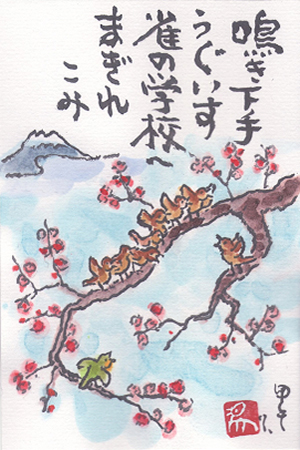 鳴き下手
うぐいす
雀の学校へ
まぎれ
こみ